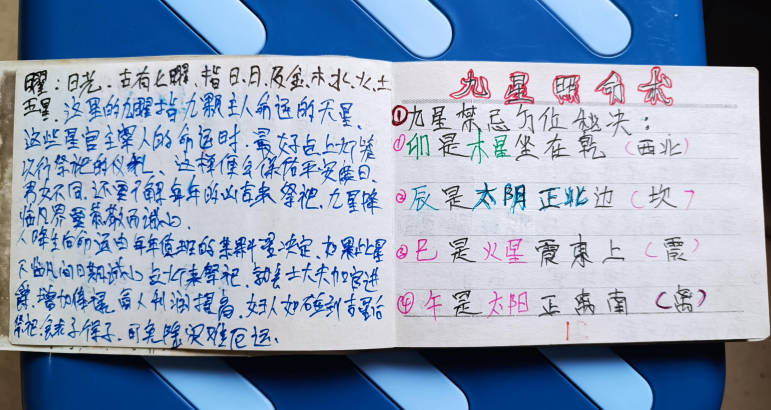 曜：日光、古有七曜、指日、月、及金、木、水、火、土
五星、这里的九曜指九颗主人命运的天星、
这些星官主宰人的命运时、最好点上灯
以行祭祀的仪礼、这样便会保佑平安
男女不同、还要了解每年的凶吉来祭祀、九星降
临凡界
人降生后命运由每年值班的星决定、如果
下临凡间日期 点灯来祭祀、士大夫加官进
增加俸禄、商人利润提高、妇人如碰到吉星后
祭祀、会、可免除灾难厄运、
九星照命术
①九星禁忌方位秘决：
①卯是木星坐在乾（西北）
②辰是太阴正北边（坎）
③巳是火星震東上（震）
④午是太阳正离南（离）